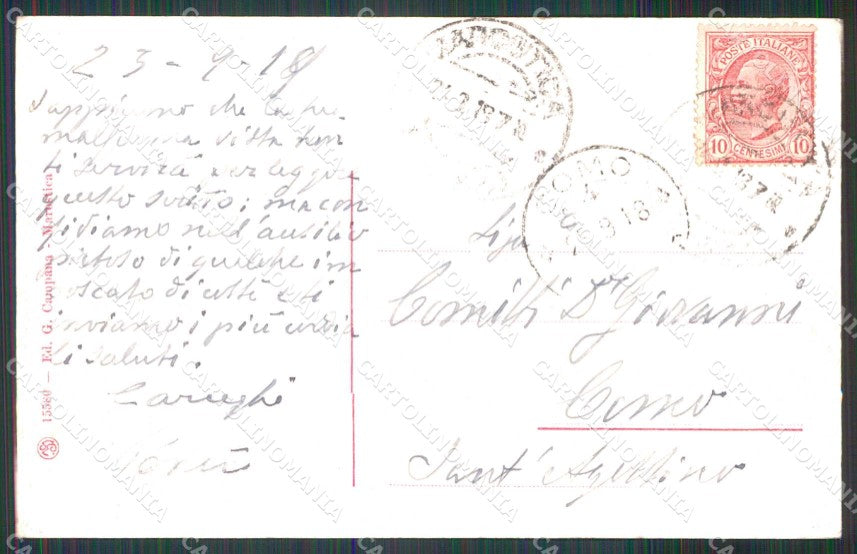 23-9-18
Sappiamo che la tua
malferma vista non
ti servirà per leggere
questo scritto; ma con
fidiamo nell'ausilio
pietoso di qualche im
boscato di costì e ti
inviamo i più cordia
li saluti.
15589 — Ed. G. Campana - Marostica
POSTE ITALIANE
10 CENTESIMI 10
COMO
9 18
Sig.
Comitti Dr Giovanni
Como
Sant'Agostino
CARTOLINOMANIA